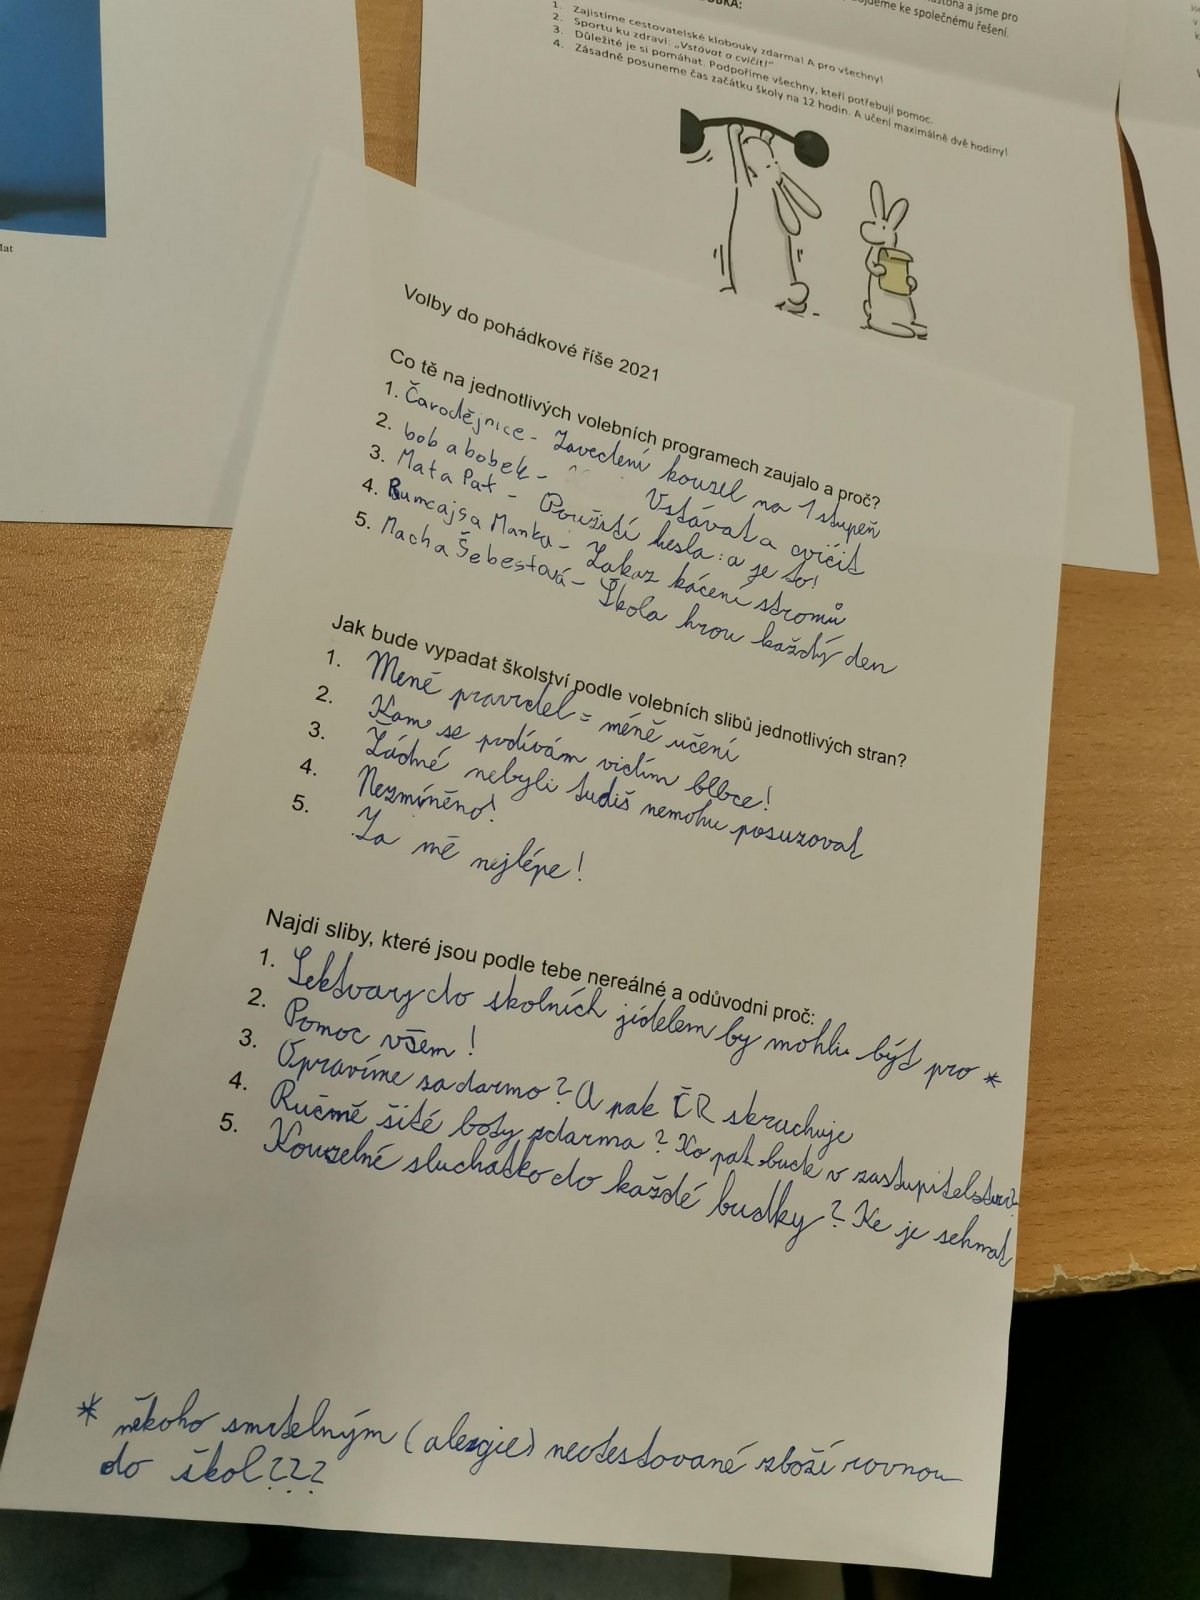 astoňa a jsme pro
ojdeme ke společnému řešení.
OBKA:
1. Zajistíme cestovatelské klobouky zdarma! A pro všechny!
2. Sportu ku zdraví: „Vstávat a cvičit!"
3. Důležité je si pomáhat. Podpoříme všechny, kteří potřebují pomoc.
4. Zásadně posuneme čas začátku školy na 12 hodin. A učení maximálně dvě hodiny!
Mat
Volby do pohádkové říše 2021
Co tě na jednotlivých volebních programech zaujalo a proč?
1. Čarodějnice - Zavedení kouzel na 1 stupeň
2. bob a bobek - Vstávat a cvičit
3. Mata Pat - Použití hesla: a je to!
4. Rumcajsa Manka - Zakaz kácení stromů
5. Macha Šebestová - Škola hrou každý den
Jak bude vypadat školství podle volebních slibů jednotlivých stran?
1. Mené pravidel = méně učení
2. Kam se podívám vidím blbce!
3. Žádné nebyli tudiš nemohu posuzovat
4. Nezmíněno!
5. Za mě nejlépe!
Najdi sliby, které jsou podle tebe nereálné a odůvodni proč:
1. Lektvary do školních jídelem by mohli být pro *
2. Pomoc všem!
3. Opravíme sadarmo? A pak ČR skrachuje
4. Ručmě šité boty zdarma? Ko pak bude v zastupitelstvu?
5. Kouzelné sluchatko do každé budky? Ke je sehnat
* někoho smrtelným (alergie) neotestované zboží rovnou
do škol???